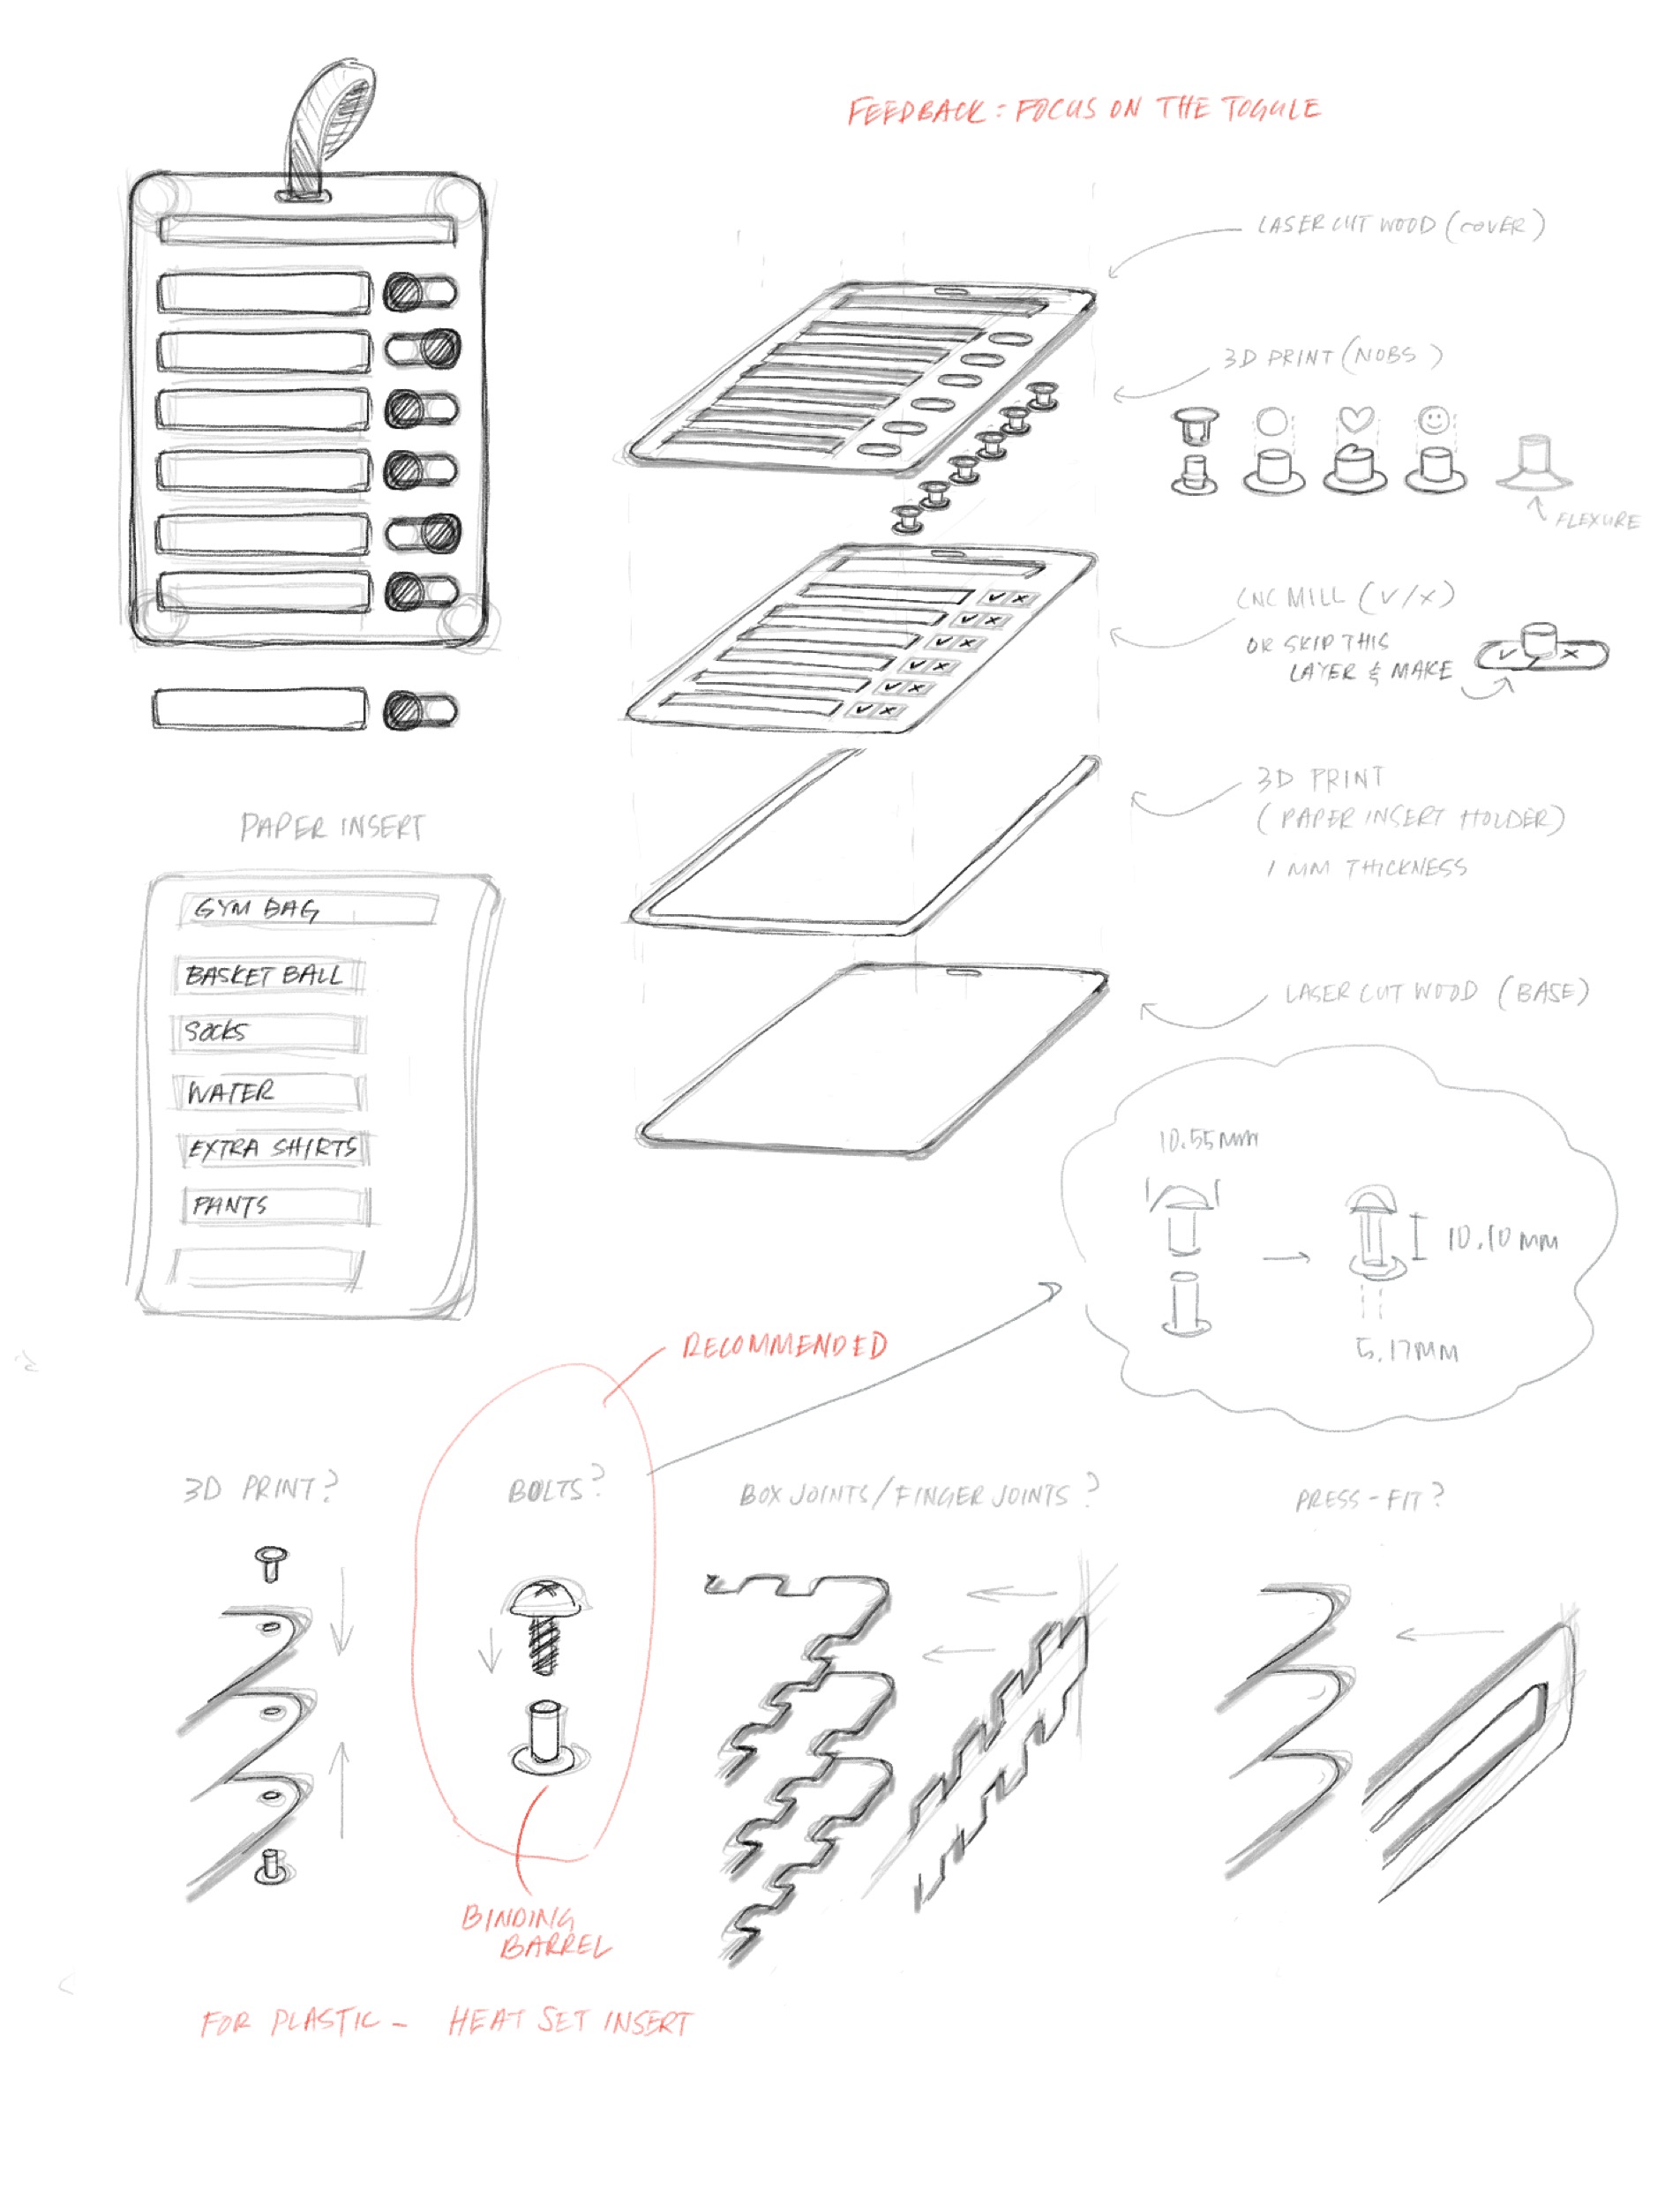 FEEDBACK: FOCUS ON THE TOGGLE
LASER CUT WOOD (COVER)
3D PRINT (NOBS)
FLEXURE
CNC MILL (✓/×)
OR SKIP THIS
LAYER & MAKE
✓ ×
✓ ×
✓ ×
✓ ×
✓ ×
✓ ×
✓ ×
3D PRINT
(PAPER INSERT HOLDER)
1 MM THICKNESS
PAPER INSERT
GYM BAG
BASKET BALL
SOCKS
WATER
EXTRA SHIRTS
PANTS
LASER CUT WOOD (BASE)
10.55MM
10.10MM
5.17MM
RECOMMENDED
3D PRINT?
BOLTS?
BOX JOINTS/FINGER JOINTS?
PRESS-FIT?
BINDING
BARREL
FOR PLASTIC - HEAT SET INSERT